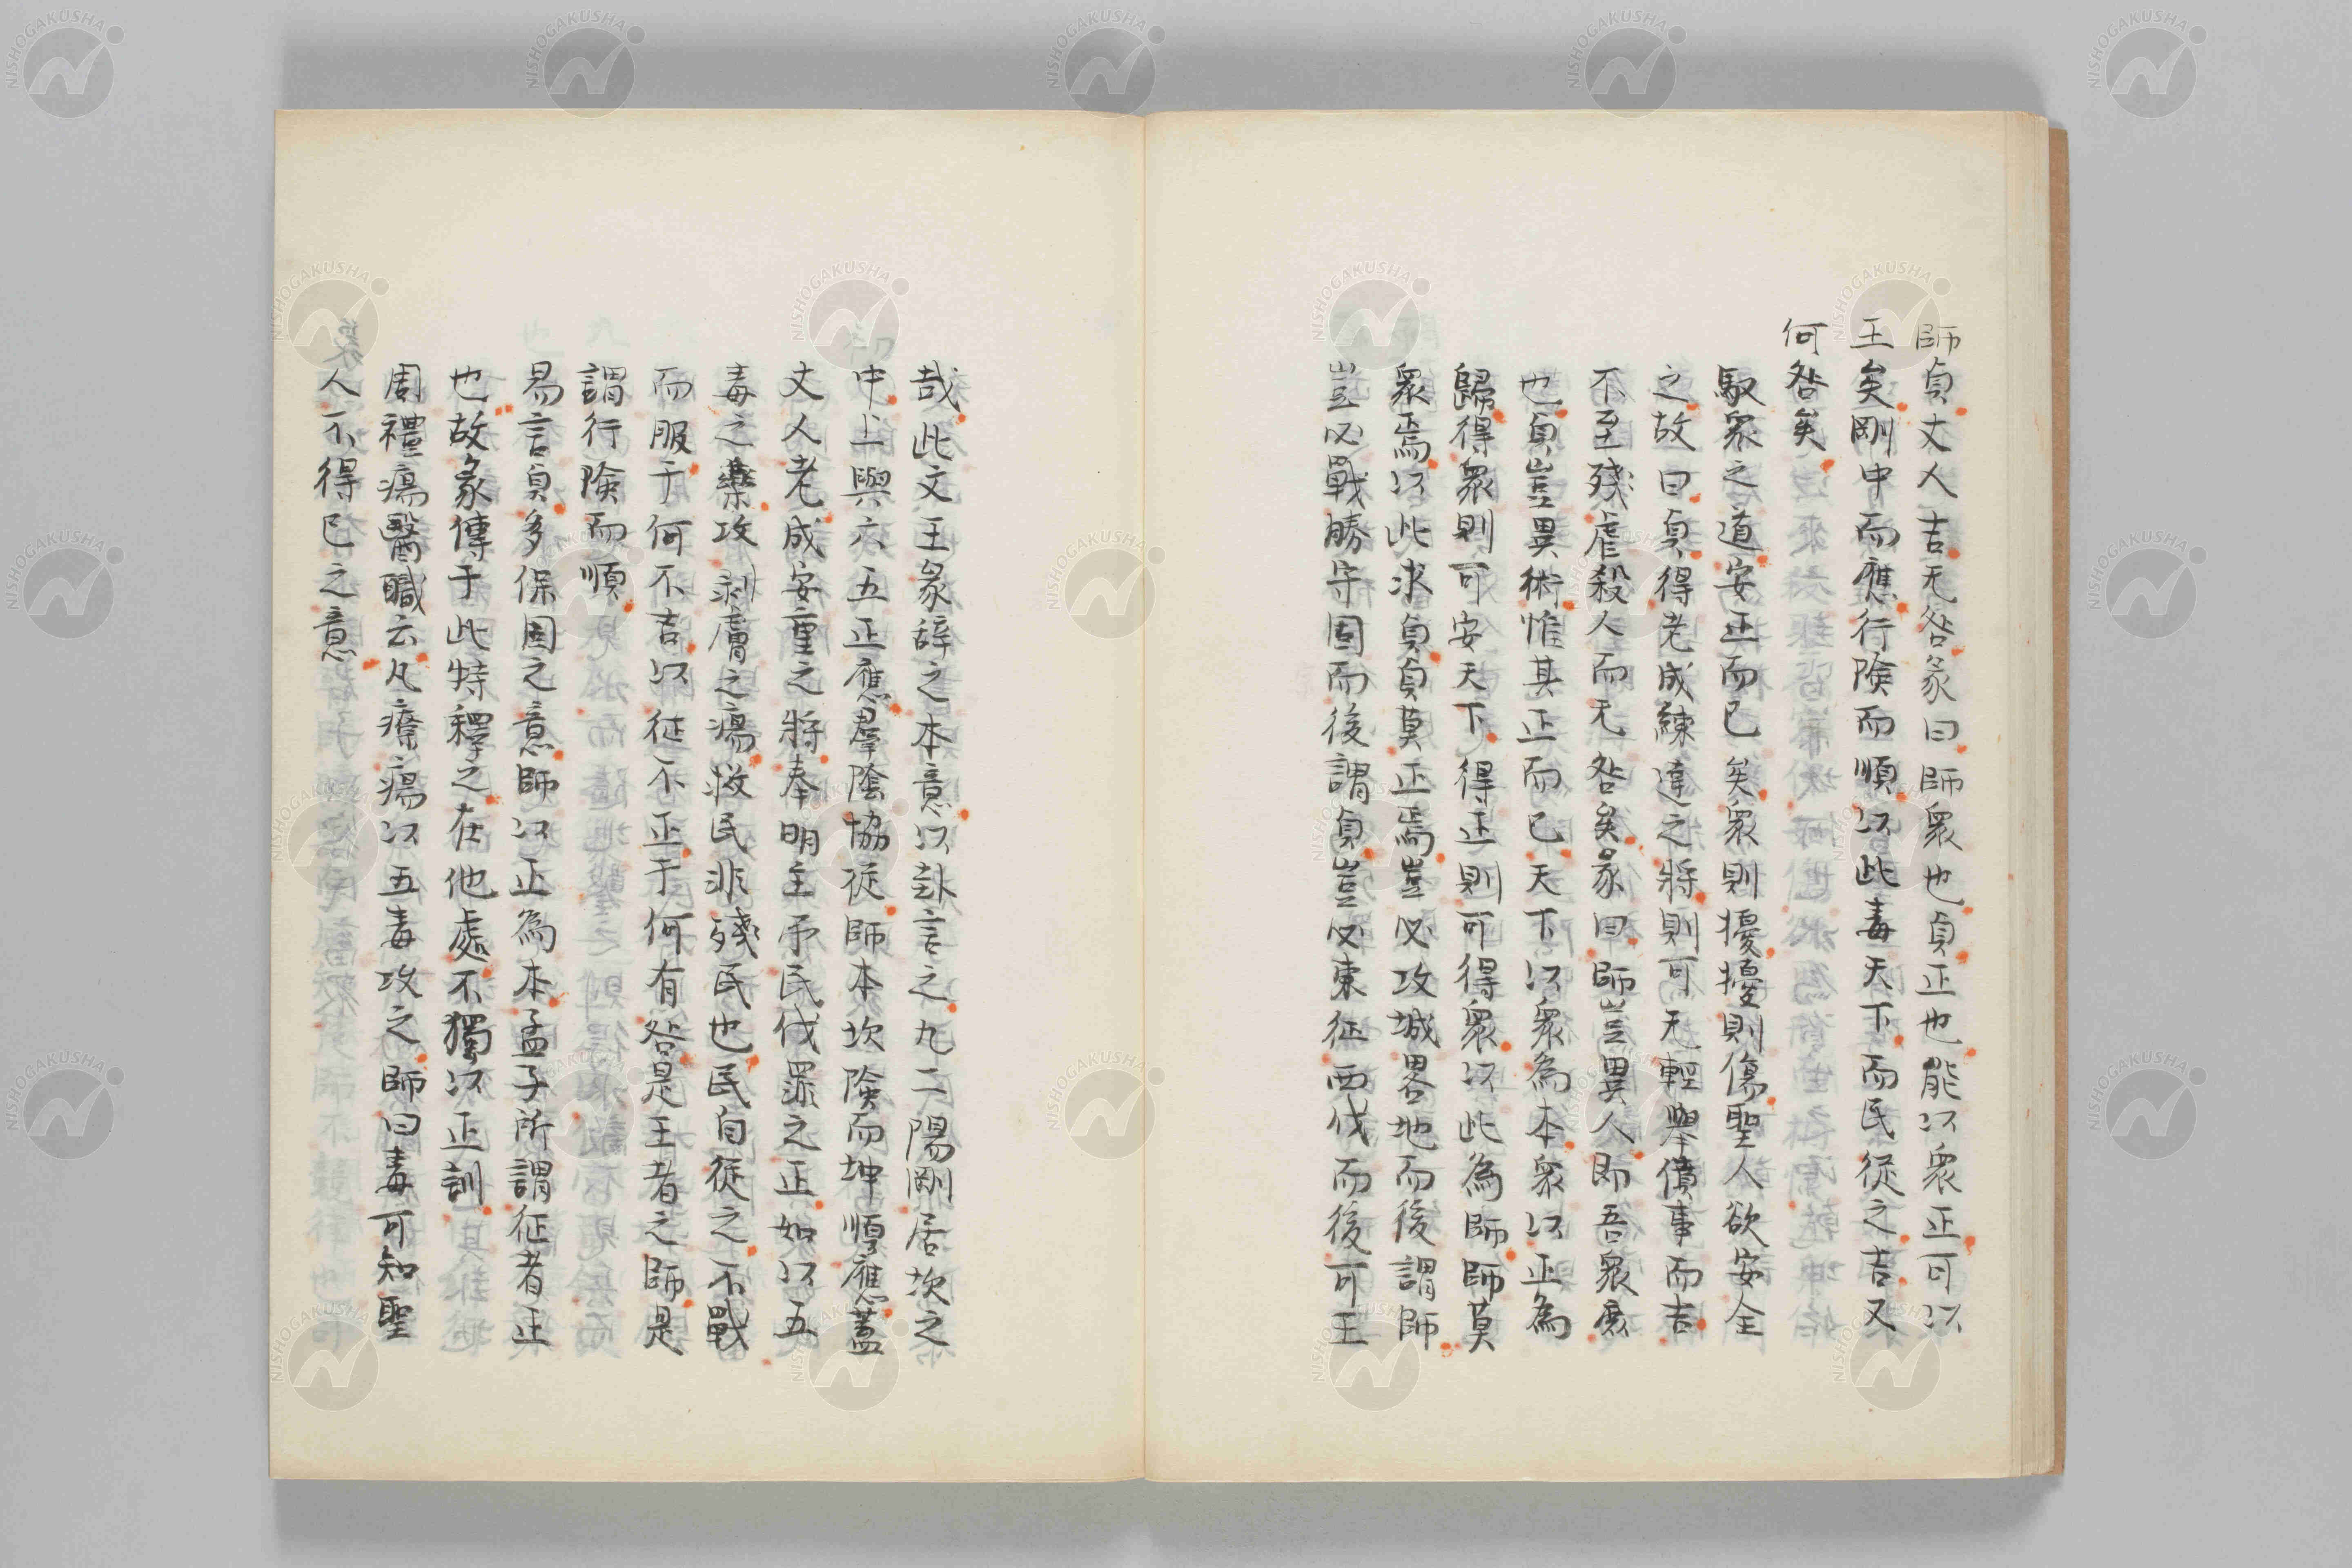 師貞丈人吉无咎彖曰師衆也貞正也能以衆正可以
王矣剛中而應行險而順以此毒天下而民從之吉又
何咎矣
馭衆之道安正而已矣衆則擾擾則傷聖人欲安全
之故曰貞得老成練達之將則可无輕舉僨事而吉
不至殘虐殺人而无咎矣彖曰師豈異人即吾衆爲
也貞豈異術惟其正而已天下以衆為本衆以正為
歸得衆則可安天下得正則可得衆以此為師師莫
衆焉以此求貞貞莫正焉豈必攻城畧地而後謂師
豈必戰勝守固而後謂貞豈必東征西伐而後可王
哉此文王彖辞之本意以卦言之九二陽剛居坎之
中上與六五正應羣陰協從師本坎險而坤順應蓋
丈人老成安重之將奉明主予民伐罪之正如以五
毒之藥攻剥膚之瘍救民非殘民也民自從之不戰
而服于何不吉以征不正于何有咎是王者之師是
謂行險而順
易言貞多保固之意師以正為本孟子所謂征者正
也故彖傳于此特釋之在他處不獨以正訓
周禮瘍醫職云凡療瘍以五毒攻之師曰毒可知聖
人不得已之意
NISHOGAKUSHA